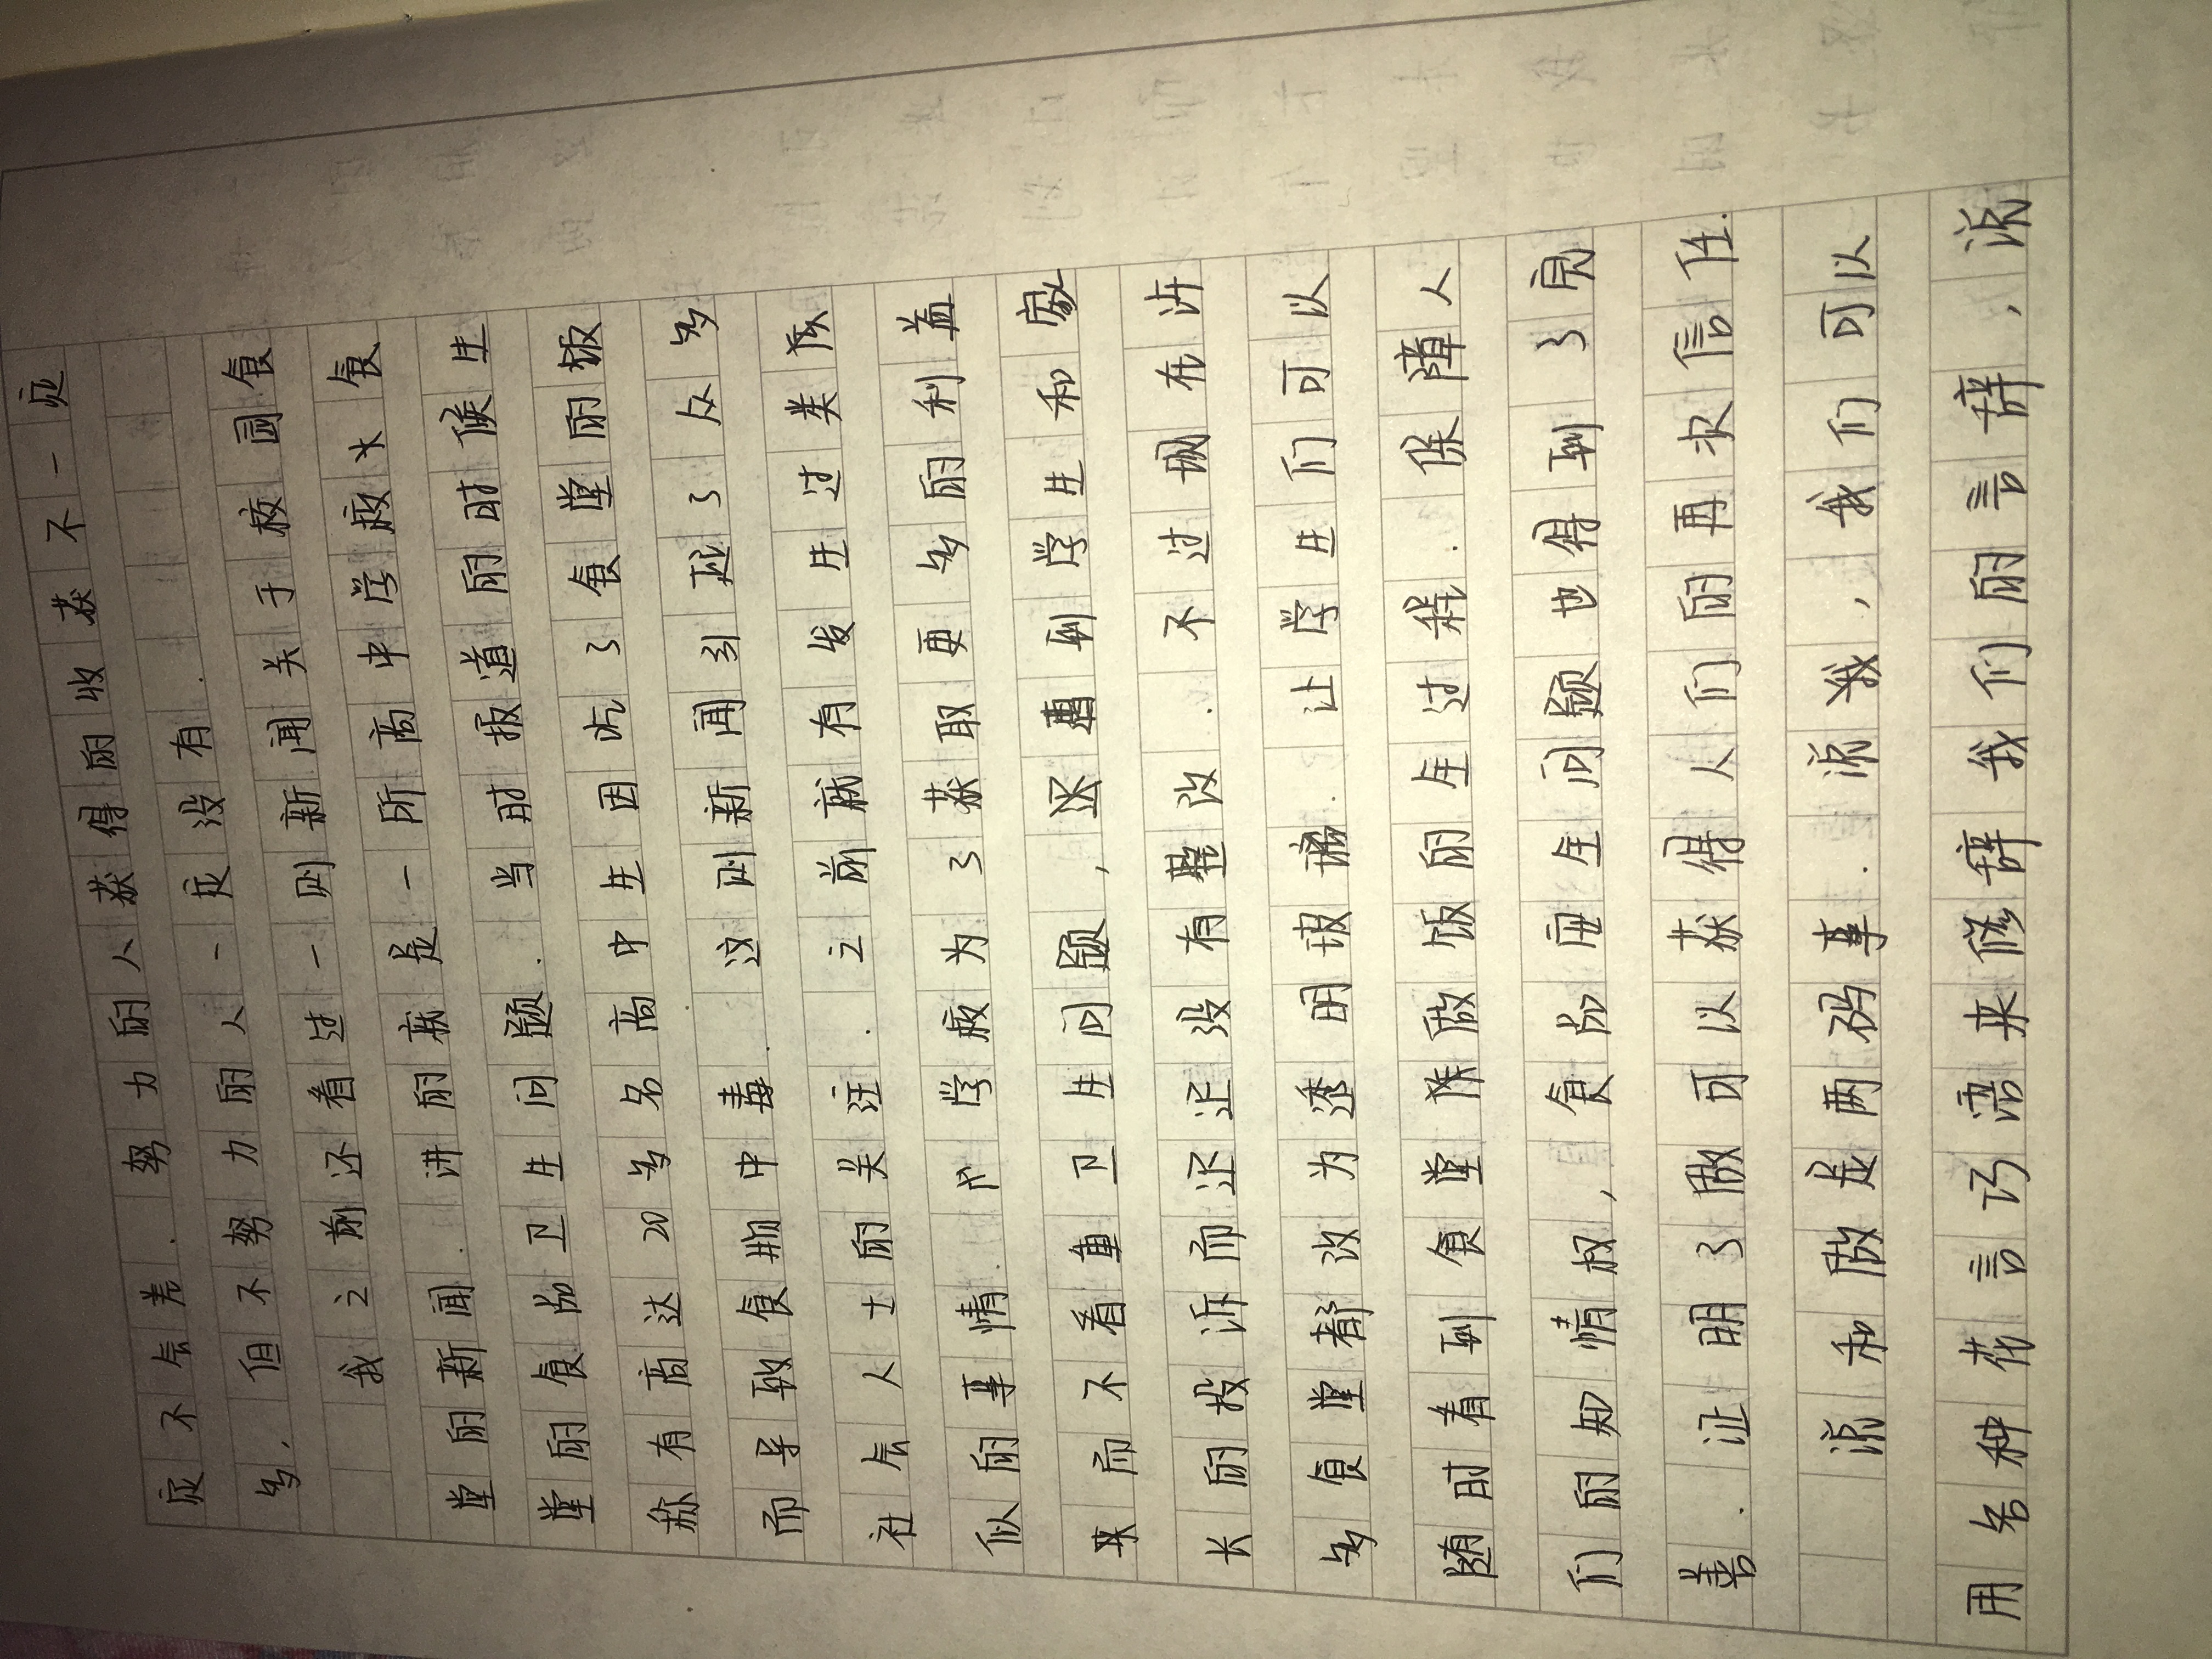 应不会差.努力的人获得的收获不一应
多,但不努力的人一定没有.
我之前还看过一则新闻关于校园食
堂的新闻.讲的就是一所高中学校大食
堂的食品卫生问题.当时报道的时候生
称有高达20多名高中生因为吃了食堂的饭
而导致食物中毒.这则新闻引起了众多
社会人士的关注.之前就有发生过类
似的事情.学校为了获取更多的利益
而不看重卫生问题,还遭到学生和家
长的投诉而还没有整改.不过现在许
多食堂都改为透明玻璃.让学生们可以
随时看到食堂阵做饭的全过程.保障人
们的知情权,食品安全问题也得到了完
善.证明了做可以获得人们的再次信任.
说和做是两码事.说我,我们可以
用各种花言巧语来修辞我们的言辞,说